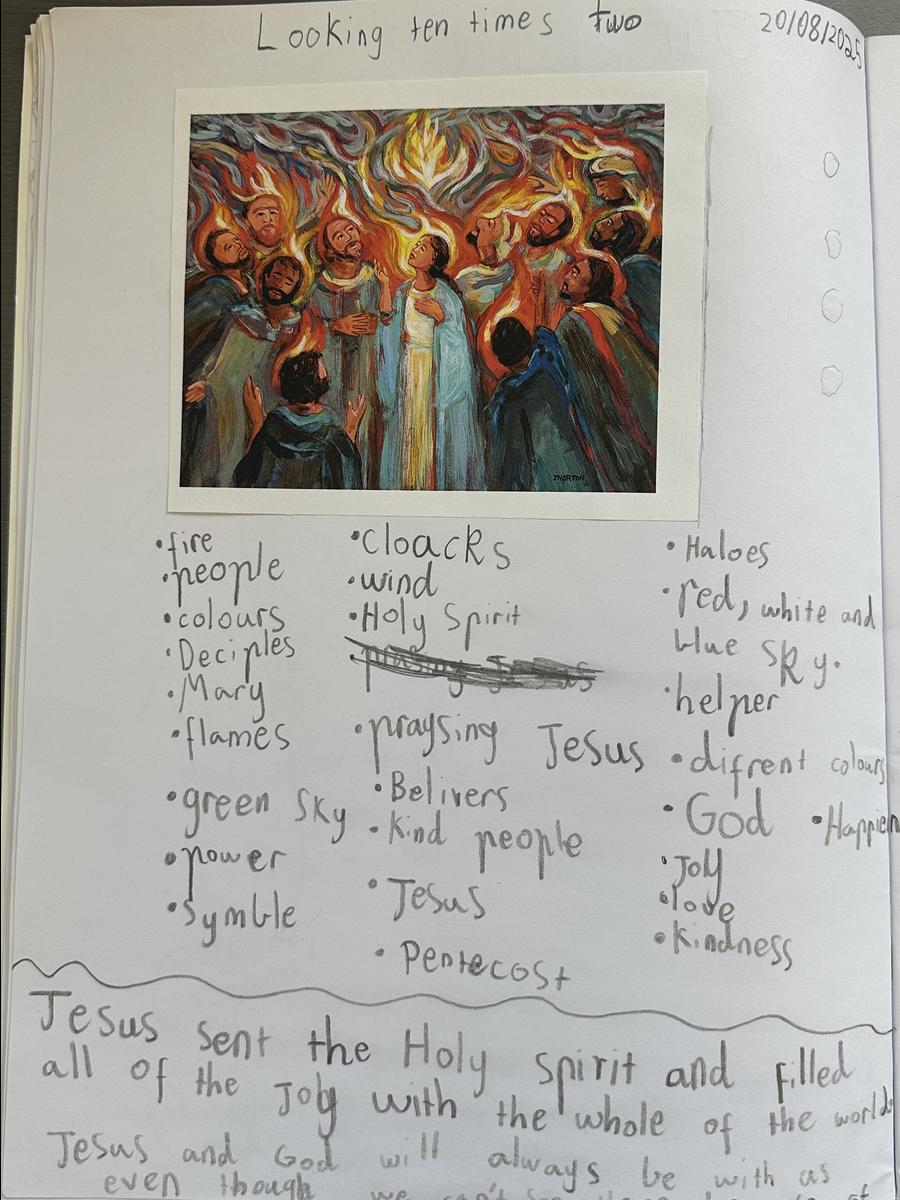 Looking ten times two
20/08/2025
JNORTON
•fire
•people
•colours
•Deciples
•Mary
•flames
•green sky
•power
•symble
•cloacks
•wind
•Holy Spirit
•praysing Jesus
•Belivers
•kind people
•Jesus
•Pentecost
•Haloes
•red, white and
blue sky.
•helper
•difrent colours
•God •Happien
•Joy
•love
•kindness
Jesus sent the Holy Spirit and filled
all of the Joy with the whole of the world
Jesus and God will always be with as
even though we can't see